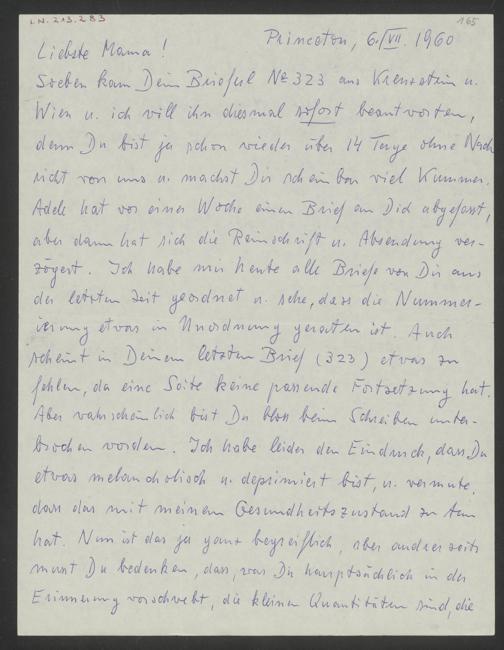 I.N. 213.283
165
Princeton, 6./VII. 1960
Liebste Mama!
Soeben kam Dein Brieferl № 323 aus Krenstein u.
Wien u. ich will ihn diesmal sofort beantworten,
denn Du bist ja schon wieder über 14 Tage ohne Nach
richt von uns u. machst Dir scheinbar viel Kummer.
Adele hat vor einer Woche einen Brief an Dich abgefasst,
aber dann hat sich die Reinschrift u. Absendung ver-
zögert. Ich habe mir heute alle Briefe von Dir aus
der letzten Zeit geordnet u. sehe, dass die Nummer-
ierung etwas in Unordnung geraten ist. Auch
scheint in Deinem letzten Brief (323) etwas zu
fehlen, da eine Seite keine passende Fortsetzung hat.
Aber wahrscheinlich bist Du bloss beim Schreiben unter-
brochen worden. Ich habe leider den Eindruck, dass Du
etwas melancholisch u. deprimiert bist, u. vermute,
dass das mit meinem Gesundheitszustand zu tun
hat. Nun ist das ja ganz begreiflich, aber andrerseits
musst Du bedenken, dass, was Dir hauptsächlich in der
Erinnerung vorschwebt, die kleinen Quantitäten sind, die